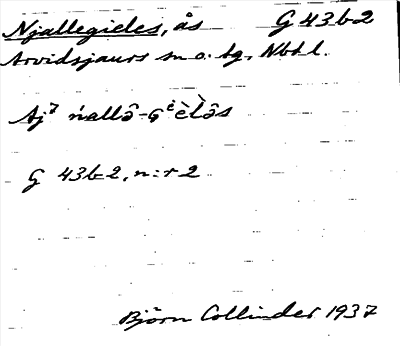 Njallegieles, ås G 43b2
Arvidsjaurs sn o. tg, Nbtl.
Aj⁷ ńallô-Gᵉèlôs
G 43b2, n:r 2
Björn Collinder 1937